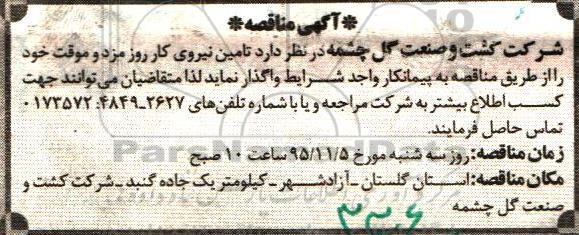 *آگهی مناقصه*
شرکت کشت و صنعت گل چشمه در نظر دارد تامین نیروی کار روز مزد و موقت خود
را از طریق مناقصه به پیمانکار واجد شرایط واگذار نماید لذا متقاضیان می توانند جهت
کسب اطلاع بیشتر به شرکت مراجعه و یا با شماره تلفن‌های ۲۶۲۷-۴۸۴۹؛۰۱۷۳۵۷۲
تماس حاصل فرمایند.
زمان مناقصه: روز سه شنبه مورخ ۹۵/۱۱/۵ ساعت ۱۰ صبح
مکان مناقصه: استان گلستان - آزادشهر - کیلومتر یک جاده گنبد - شرکت کشت و
صنعت گل چشمه